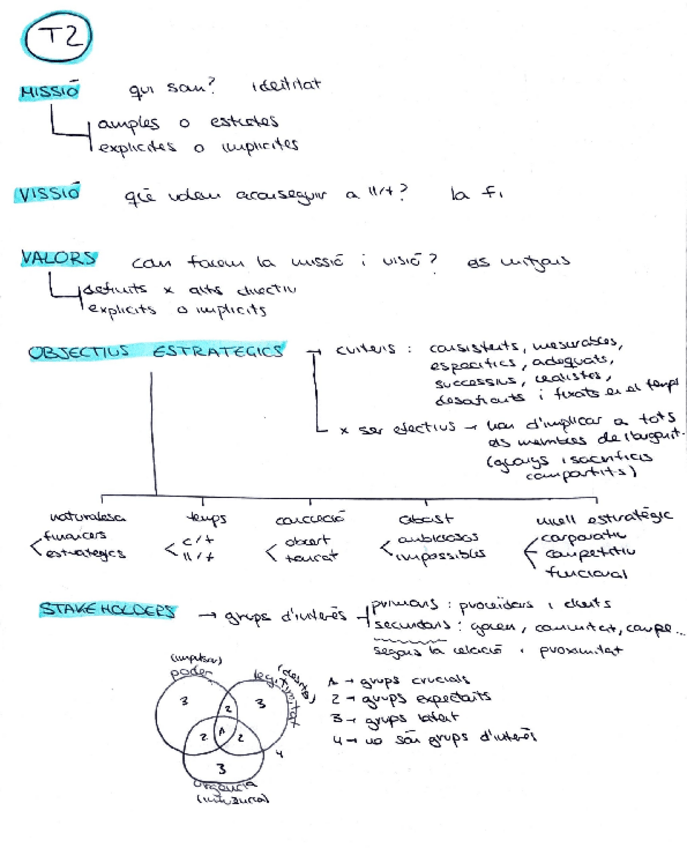 T2
MISSIÓ qui som? identitat
amples o estretes
explícites o implícites
VISSIÓ què volem aconseguir a ll/t? la fi
VALORS com farem la missió i visió? els mitjans
definits x alts directiu
explícits o implícits
OBJECTIUS ESTRATEGICS → criteris : consistents, mesurables,
específics, adequats,
successius, realistes,
desafiants i fixats en el temps
x ser efectius → han d'implicar a tots
els membres de
(guanys i sacrificis
compartits)
naturalesa temps concreció abast nivell estratègic
financers c/t obert ambiciosos corporatiu
estrategics ll/t tancat impossibles competitiu
funcional
STAKEHOLDERS → grups d'interès primaris : proveïdors i clients
secundaris : govern, comunitat, compe...
segons la relació i proximitat
(impulsar)
poder legitimitat
3 2 3
2 1 2
3 4
urgència
1 → grups crucials
2 → grups expectants
3 → grups latent
4 → no són grups d'interès